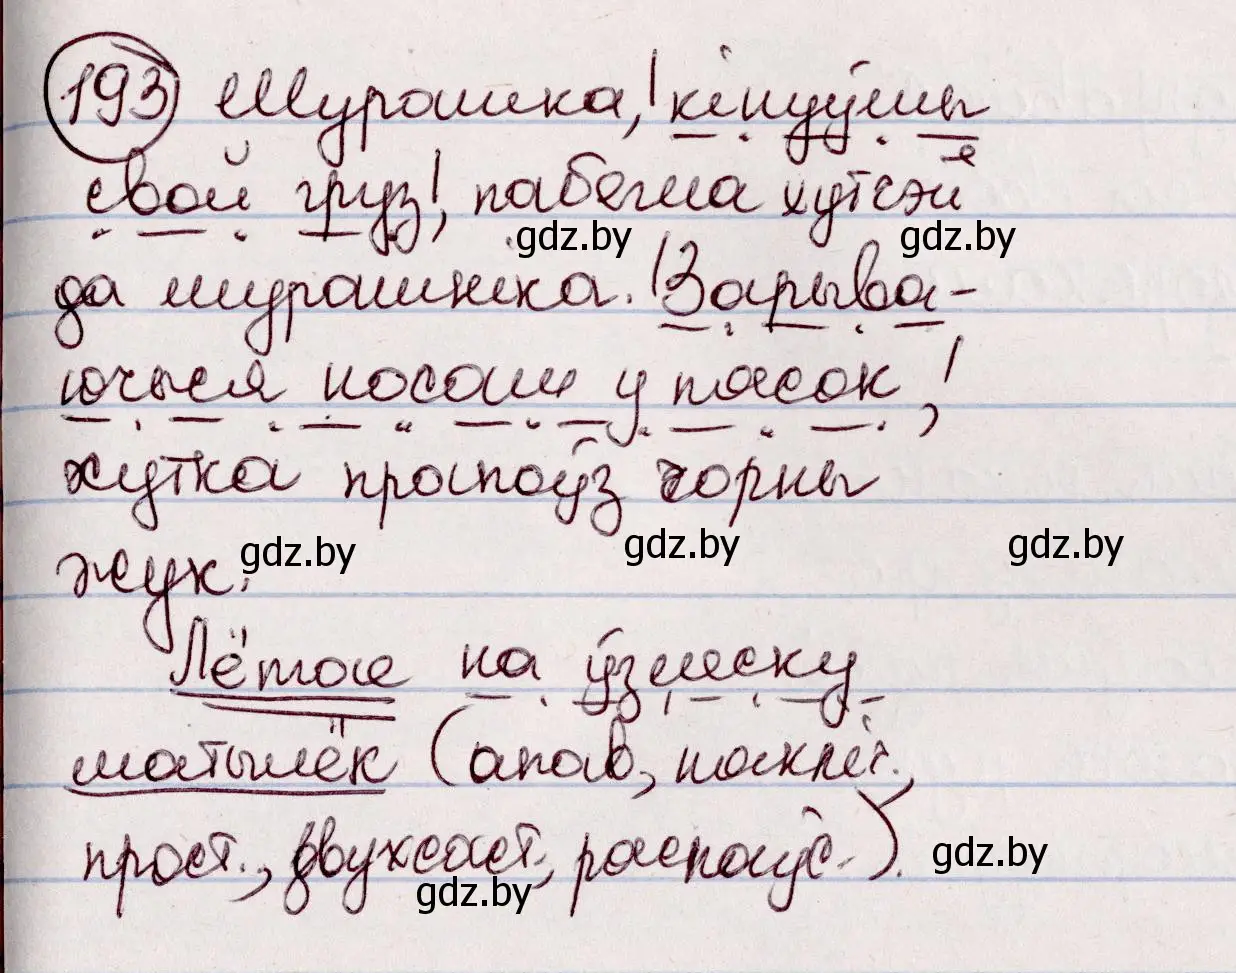 193 Мурашка, кінуўшы
свой груз, пабегла хутчэй
да мурашніка. Зарыва-
ючыся носам у пясок,
хутка прапоўз чорны
жук.
Лётае на ўзлеску
матылёк (апав., няклі.,
прост., двухсаст., распаўс.).
gdz.by
gdz.by
gdz.by
gdz.by
gdz.by
gdz.by
gdz.by